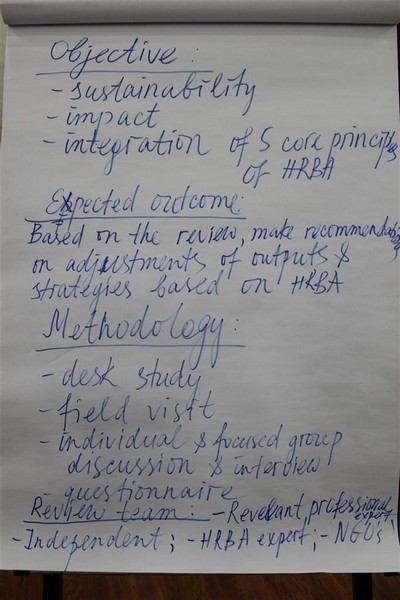 Objective :
- sustainability
- impact
- integration of 5 core principles
of HRBA
Expected outcome:
Based on the review, make recommendations
on adjustments of outputs &
strategies based on HRBA
Methodology :
- desk study
- field visit
- individual & focused group
discussion & interview
- questionnaire
Review team : - Revelant professional expert
- Independent ; - HRBA expert ; - NGOs